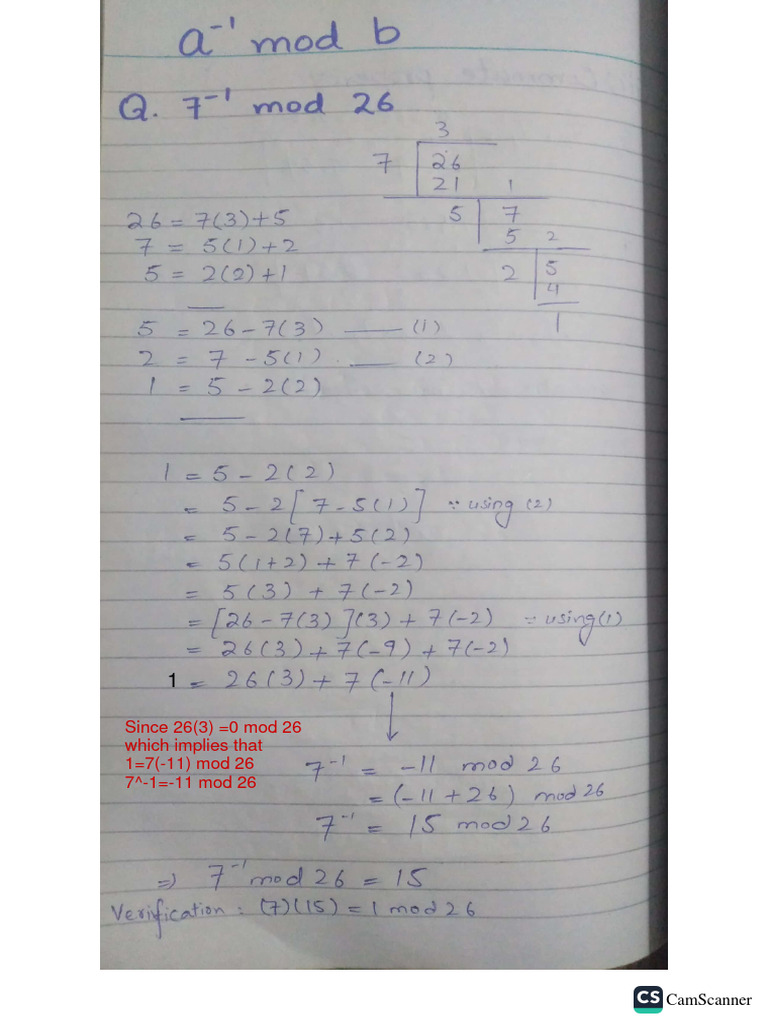 a⁻¹ mod b
Q. 7⁻¹ mod 26
3
7 26
21 1
5 7
5 2
2 5
4
1
26 = 7(3)+5
7 = 5(1)+2
5 = 2(2)+1
5 = 26-7(3) —— (1)
2 = 7 -5(1) —— (2)
1 = 5 - 2(2)
1 = 5 - 2(2)
= 5 - 2[7-5(1)] ∵ using (2)
= 5 - 2(7)+5(2)
= 5(1+2) + 7(-2)
= 5(3) + 7(-2)
= [26-7(3)](3) + 7(-2) ∵ using(1)
= 26(3) + 7(-9) + 7(-2)
1 = 26(3) + 7(-11)
Since 26(3) =0 mod 26
which implies that
1=7(-11) mod 26
7^-1=-11 mod 26
7⁻¹ = -11 mod 26
= (-11+26) mod 26
7⁻¹ = 15 mod 26
⇒ 7⁻¹ mod 26 = 15
Verification : (7)(15) = 1 mod 26
CS CamScanner